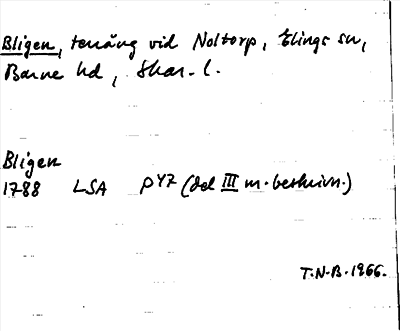 Bligen, terräng vid Noltorp, Elings sn,
Barne hd, Skar. l.
Bligen
1788 LSA P47 (del III m. beskrivn.)
T.N-B. 1966.